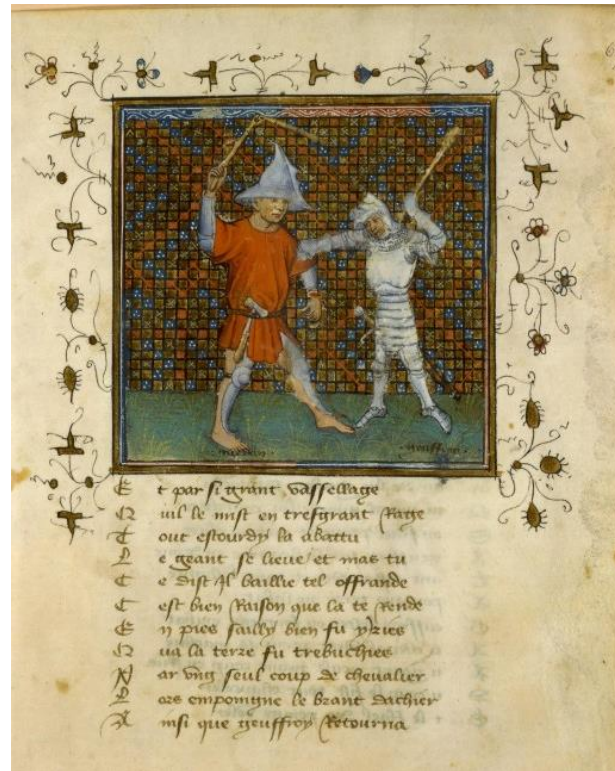 E t par si grant vassellage
Q uil le mist en tresgrant Rage
T out estourdy la abattu
L e geant se lieve et mas tu
C e dist Il baillie tel offrande
C est bien Raison que la te Rende
E n pies sailly bien fu yriés
Q ua la terre fu trebuchies
P ar vng seul coup de chevalier
L ors empoingne le brant dachier
A insi que geuffroy Retourna